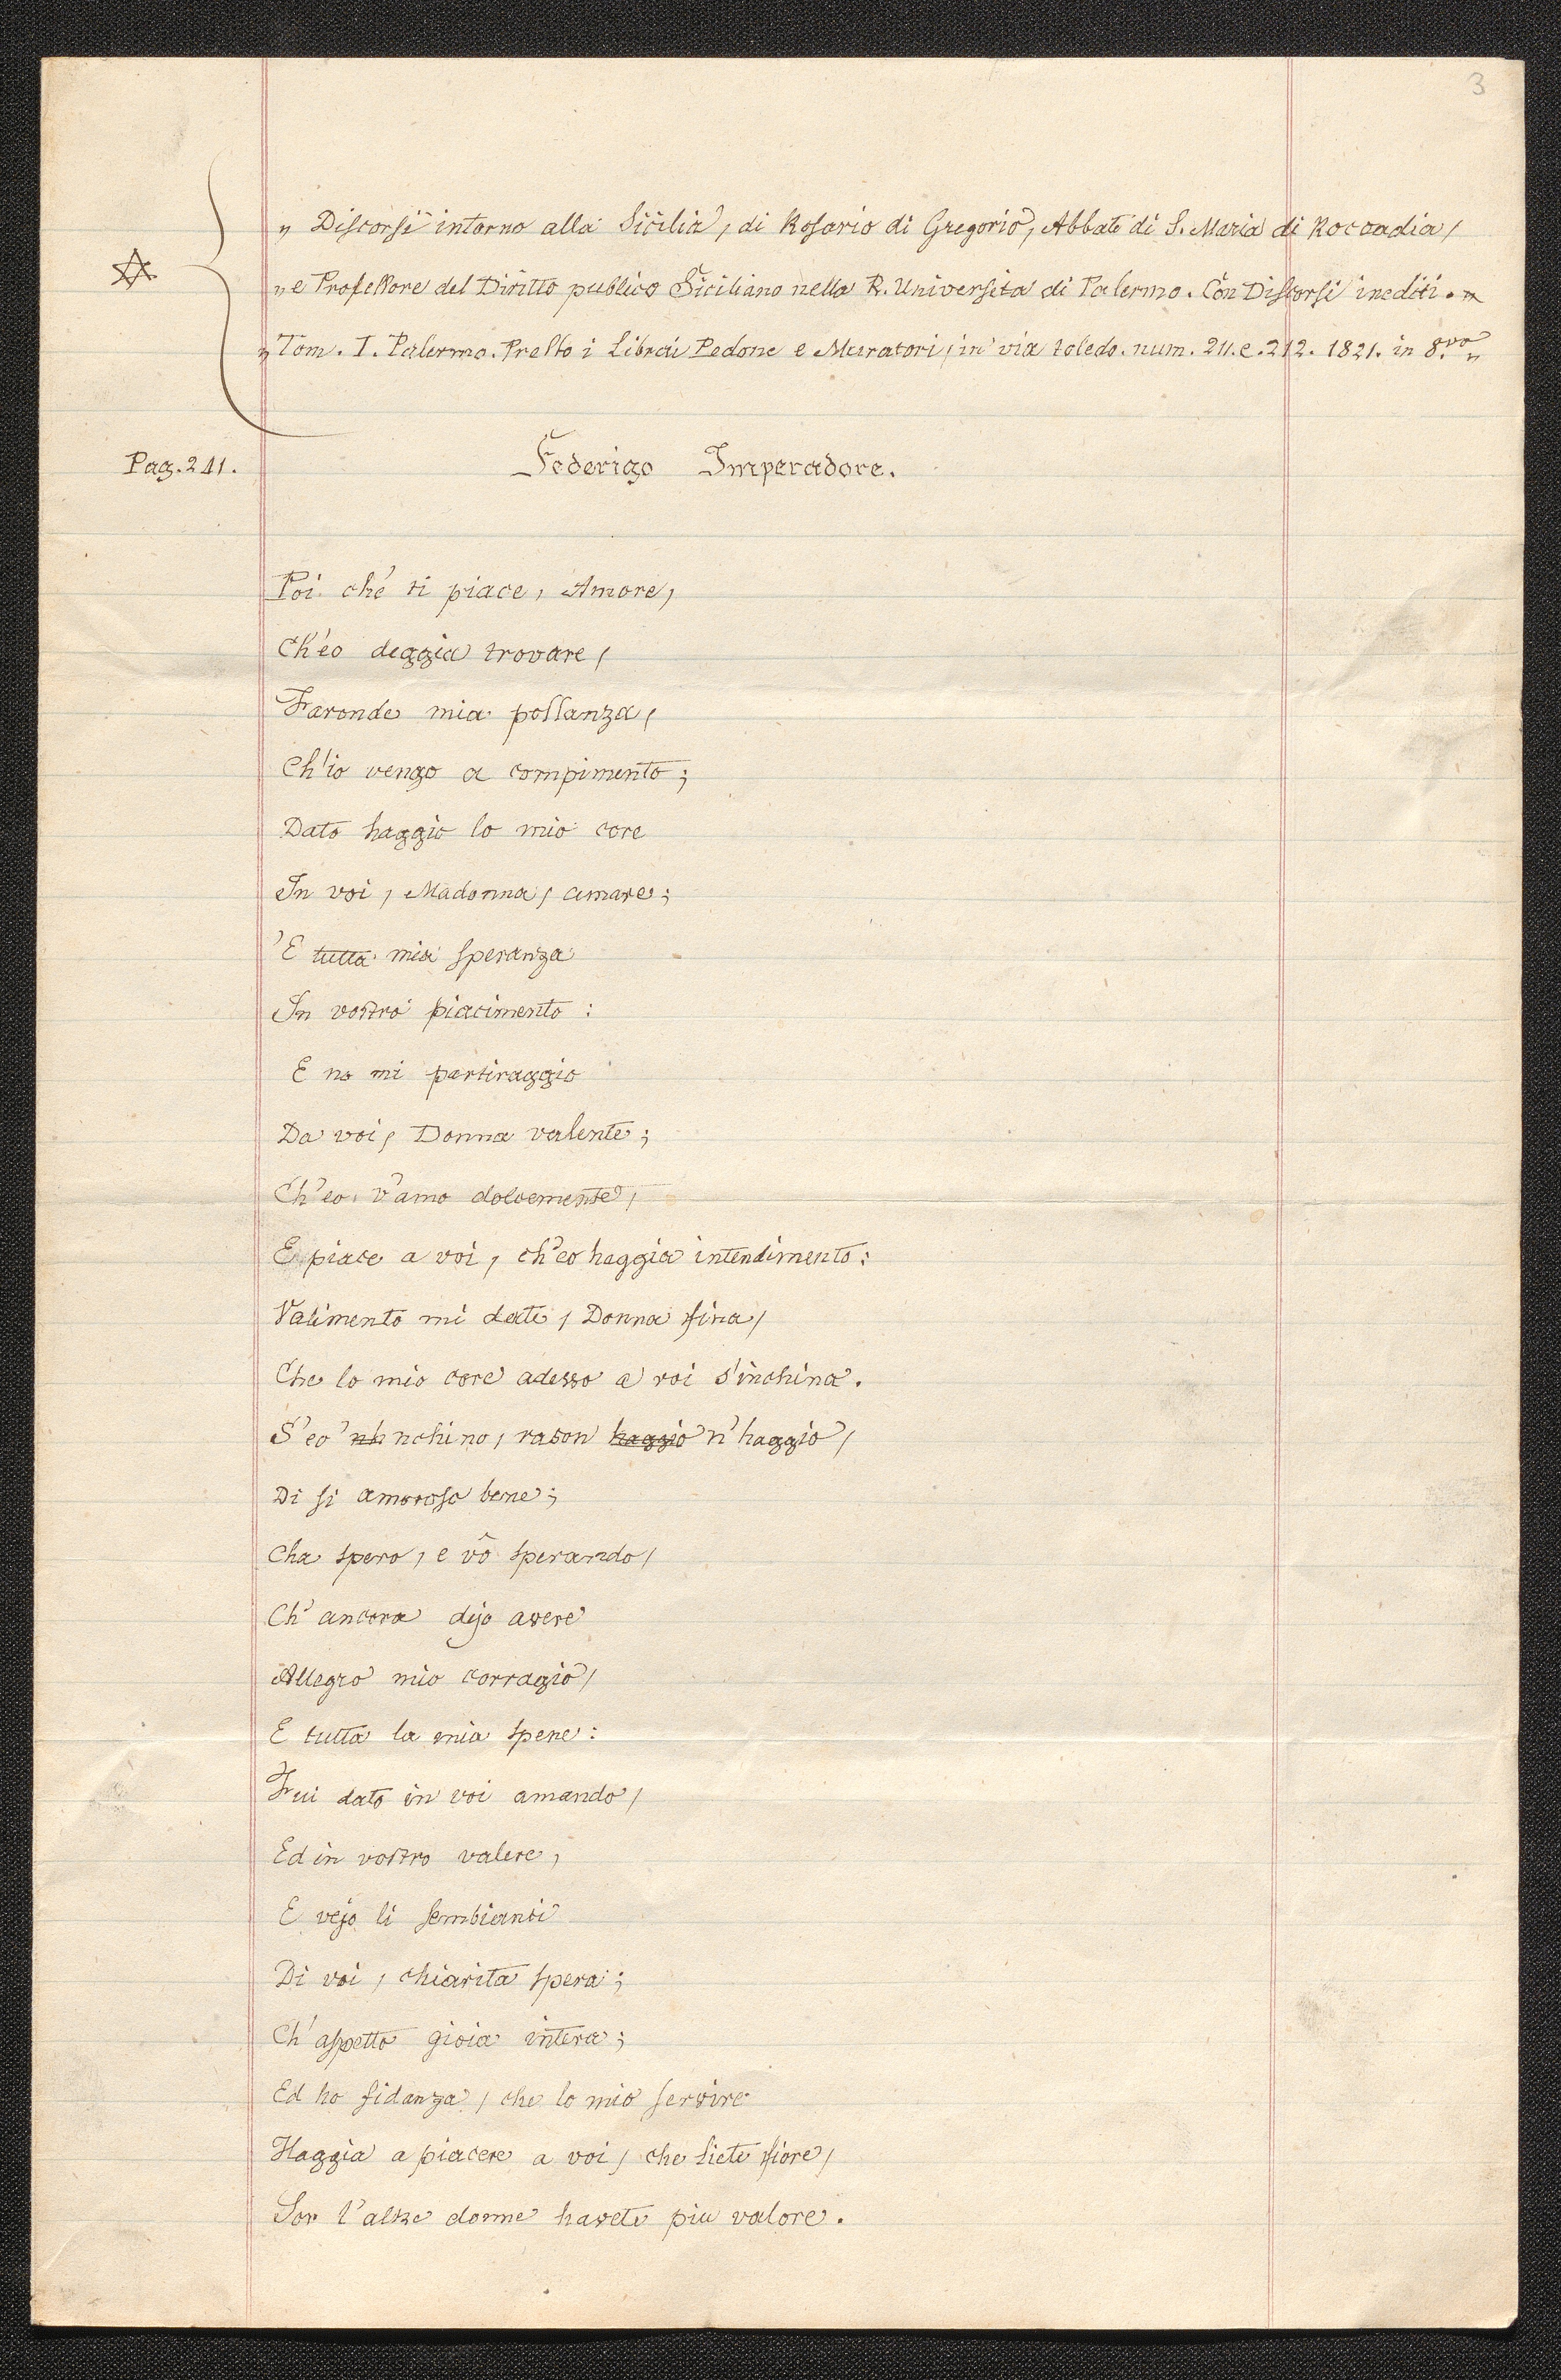 3
„ Discorsi intorno alla Sicilia, di Rosario di Gregorio, Abbate di S. Maria di Roccadia,
„ e Professore del Diritto publico Siciliano nella R. Universita di Palermo. Con Discorsi inediti.
„ Tom. I. Palermo. Presso i Librai Pedone e Muratori, in via toledo. num. 211. e. 212. 1821. in 8.vo „
Pag. 241.
Federigo Imperadore.
Poi ché ti piace, Amore,
Ch'eo deggia trovare,
Faronde mia possanza,
Ch'io vengo a compimento;
Dato haggio lo mio core
In voi, Madonna, amare;
'E tutta mia speranza
In vostro piacimento:
E no mi partiraggio
Da voi, Donna valente;
Ch'eo v'amo dolcemente,
E piace a voi, ch'eo haggia intendimento:
Valimento mi date, Donna fina,
Che lo mio core adesso a voi s'inchina.
S'eo 'nh nchino, rason haggio n'haggio,
Di si amoroso bene;
Cha spero, e vô sperando,
Ch'ancora dejo avere
Allegro mio corragio,
E tutta la mia spene:
Fui dato in voi amando,
Ed in vostro valere,
E vejo li sembianti
Di voi, chiarita spera;
Ch'aspetto gioia intera;
Ed ho fidanza, che lo mio servire
Haggia a piacere a voi, che siete fiore,
Sor l'altre donne havete piu valore.